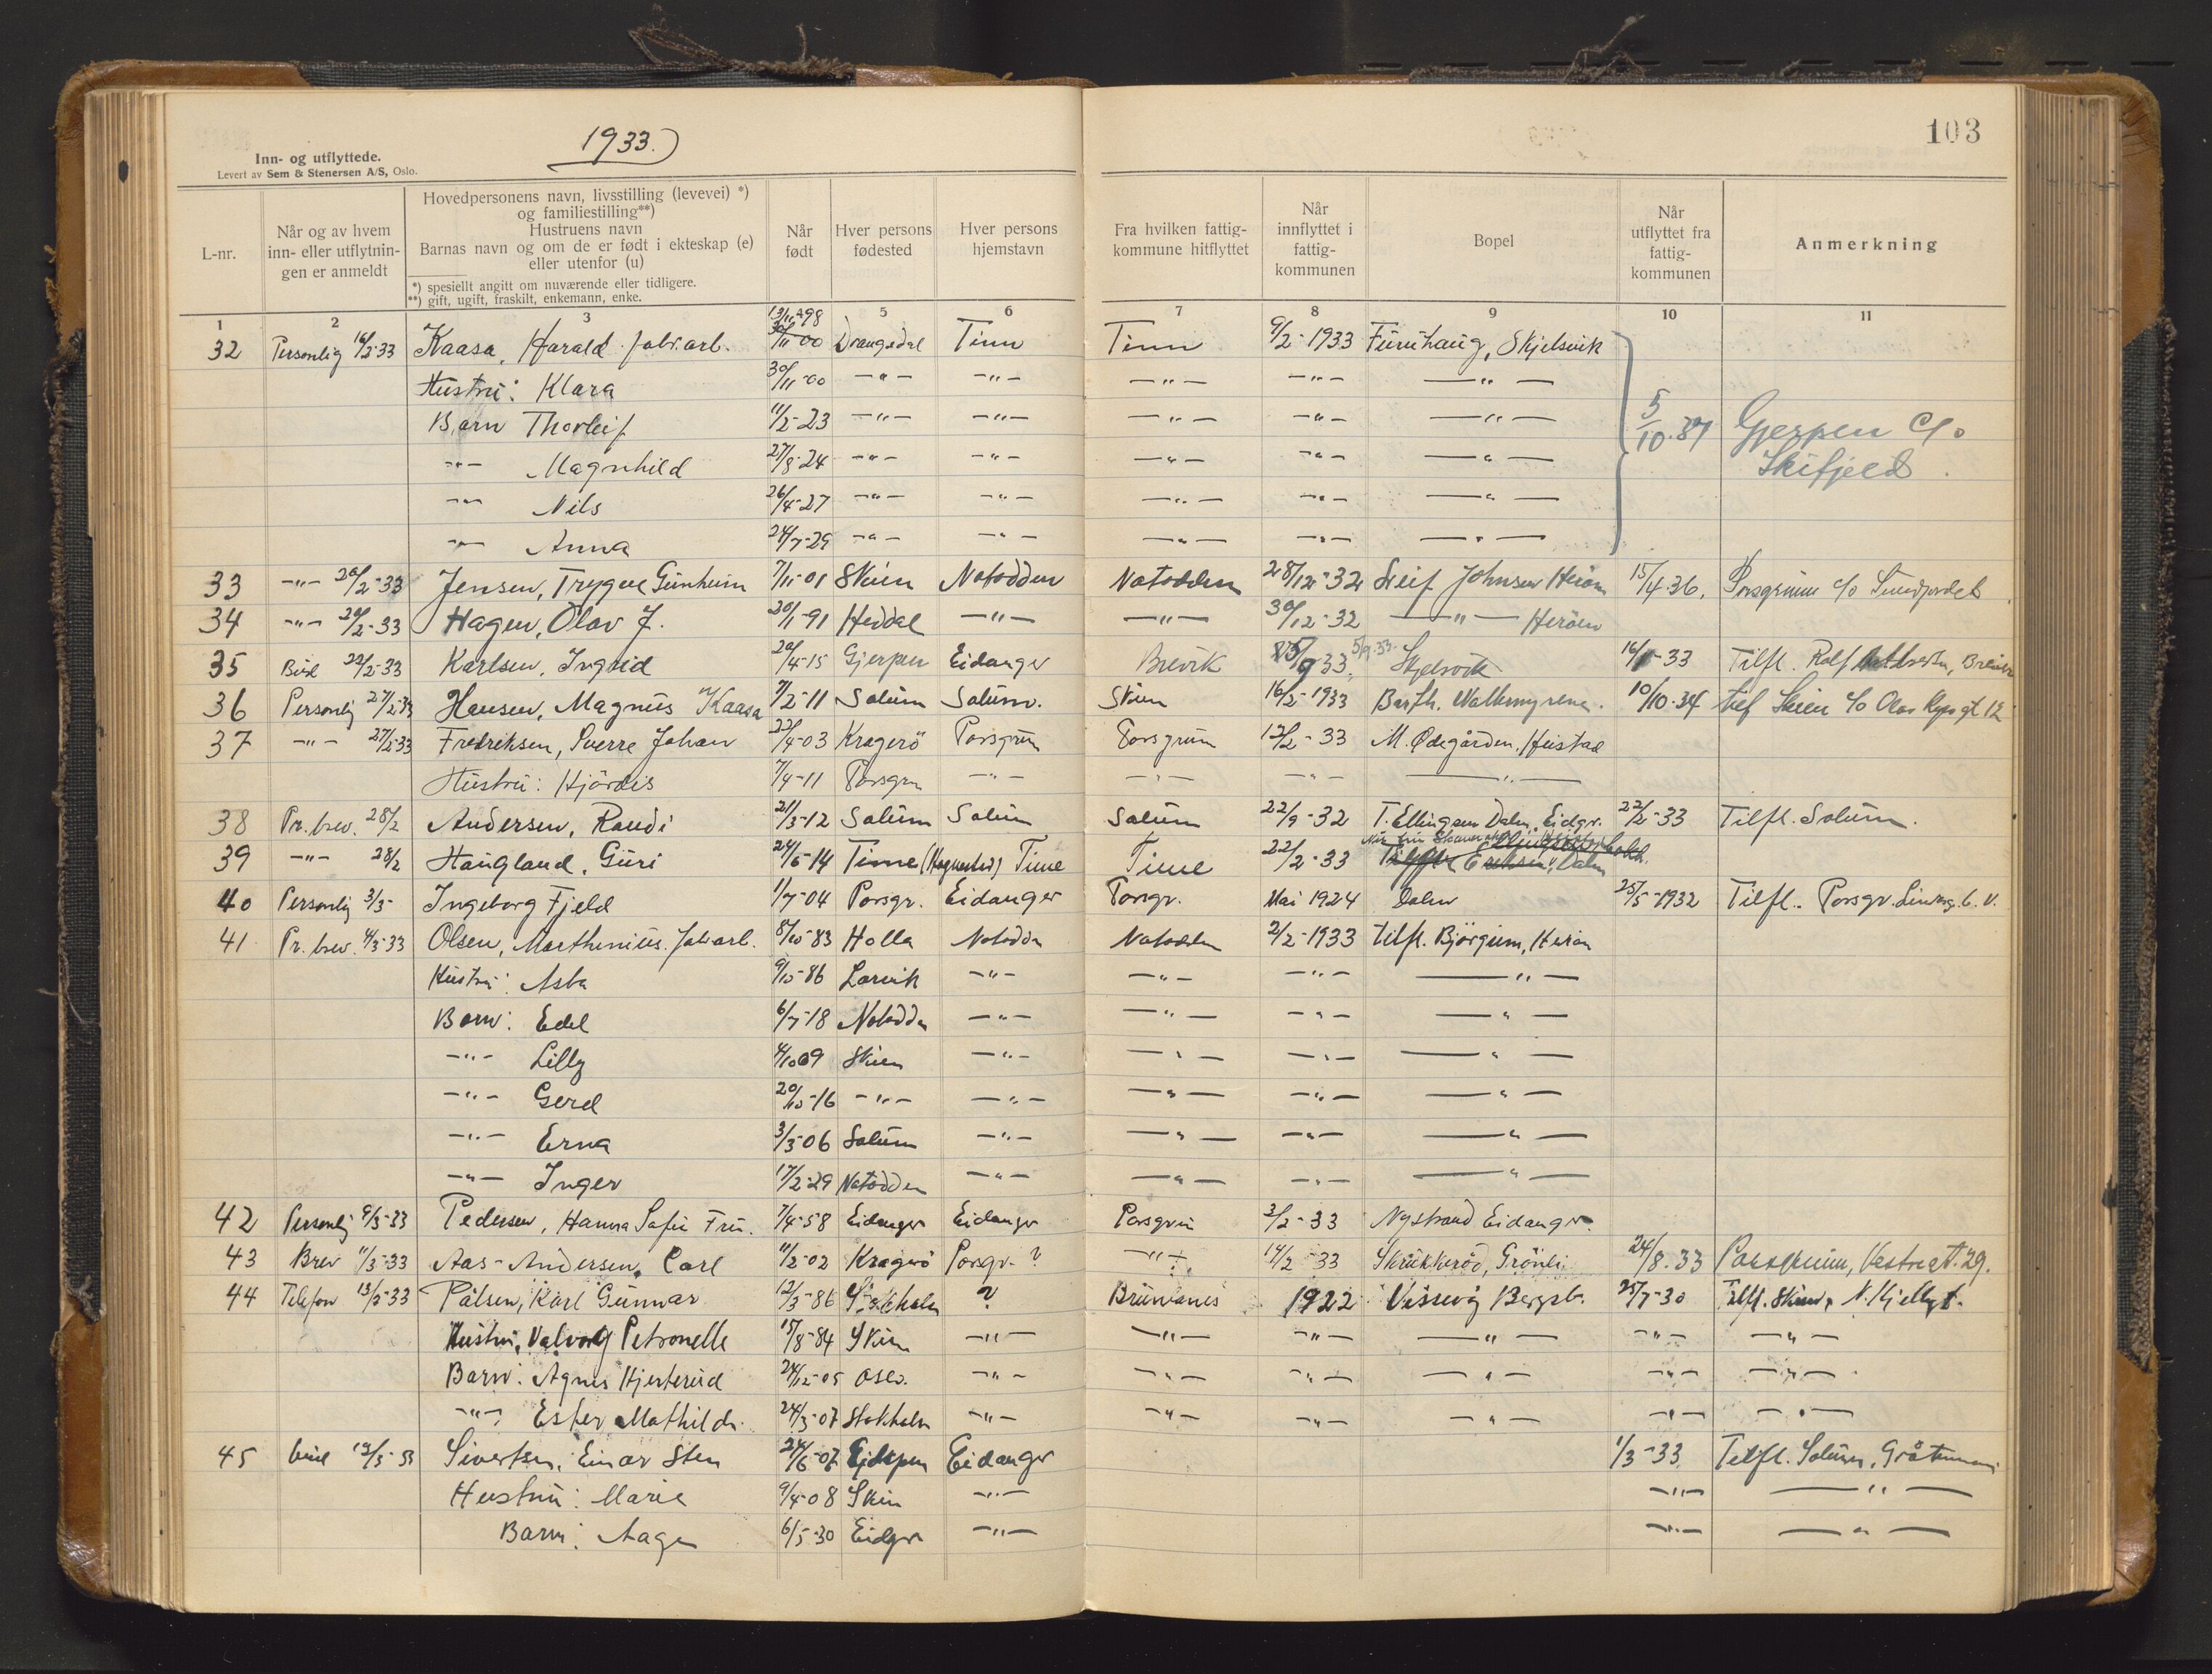 1933.
103
Inn- og utflyttede.
Levert av Sem & Stenersen A/S, Oslo.
L-nr.
Når og av hvem inn- eller utflytnin- gen er anmeldt
Hovedpersonens navn, livsstilling (levevei) *)
og familiestilling**)
Hustruens navn
Barnas navn og om de er født i ekteskap (e)
eller utenfor (u)
*) spesiellt angitt om nuværende eller tidligere.
**) gift, ugift, fraskilt, enkemann, enke.
Når født
Hver persons fødested
Hver persons hjemstavn
Fra hvilken fattig- kommune hitflyttet
Når innflyttet i fattig- kommunen
Bopel
Når utflyttet fra fattig- kommunen
Anmerkning
1 2 3 5 6 7 8 9 10 11
13/11-98
32 Personlig 16/2-33 Kaasa, Harald fabr.arb. 30/11-00 Drangedal Tinn Tinn 9/2-1933 Furuhaug, Skjelsvik
Hustru: Klara 30/11-00 -"- -"- -"- -"- -"-
Barn Thorleif 11/2-23 -"- -"- -"- -"- -"- 5/10.37 Gjerpen c/o
-"- Magnhild 27/8-24 -"- -"- -"- -"- -"- Skifjeld.
-"- Nils 26/4-27 -"- -"- -"- -"- -"-
-"- Anna 24/7-29 -"- -"- -"- -"- -"-
33 -"- 20/2-33 Jensen, Trygve Gunheim 7/11-01 Skien Notodden Notodden 28/12-32 Leif Johnsen Herøen 15/4.36. Porsgrunn c/o
34 -"- 20/2-33 Hagen, Olav J. 20/1-91 Heddal -"- -"- 30/12-32 -"- Herøen
35 Bud 22/2-33 Karlsen, Ingrid 20/4-15 Gjerpen Eidanger Brevik 5/9.33. Skjelsvik -33 Tilfl. Rolf Brevik
36 Personlig 27/2-33 Hansen, Magnus Kaasa 7/2-11 Solum Solum. Skien 16/2-1933 Barth. Walkmyrene. 10/10.34 tilf Skien c/o Olav Kyrs gt 12
37 -"- 27/2-33 Fredriksen, Sverre Johan 22/4-03 Kragerö Porsgrun Porsgrunn 12/2-33 M. Ødegården, Heistad
Hustru: Hjördis 7/4-11 Porsgrn -"- -"- -"- -"-
38 Pr. brev. 28/2 Andersen, Randi 21/3-12 Solum Solum Solum 22/9-32 T. Ellingsen Dalen, Eidgr. 22/2-33 Tilfl. Solum.
39 -"- 28/2 Haugland, Guri 24/6-14 Time Time Time 22/2-33 Dalen
40 Personlig 3/3- Ingeborg Fjeld 1/7-04 Porsgr. Eidanger Porsgr. Mai 1924 Dalen 25/5-1932 Tilfl. Porsgr.
41 Pr. brev. 4/3-33 Olsen, Marthenius. fabr.arb. 8/10-83 Holla Notodden Notodden 2/2-1933 tilfl. Björgum, Herøen
Hustru: Asta 9/10-86 Larvik -"- -"- -"- -"-
Barn: Edel 6/7-18 Notodden -"- -"- -"- -"-
-"- Lilly 4/10 09 Skien -"- -"- -"- -"-
-"- Gerd 20/10-16 -"- -"- -"- -"- -"-
-"- Erna 3/3-06 Solum -"- -"- -"- -"-
-"- Inger 17/2-29 Notodden -"- -"- -"- -"-
42 Personlig 9/3-33 Pedersen, Hanna Sofie Fru. 7/4-58 Eidanger Eidanger Porsgrun 3/2-33 Nystrand Eidanger.
43 Brev 11/3-33 Aas-Andersen, Carl 11/2-02 Kragerö Porsgr. ? -"- 14/2-33 Skrukkerød, Grönli 24/8.33 Porsgrunn, Vestregt. 29.
44 Telefon 13/3-33 Pålsen, Karl Gunnar 12/3-86 Stokholm ? Brunlanes 1922 Versvig Bergsb. 25/7-30 Tilfl. Skien, N. Hjellegt.
Hustru, Valborg Petronelle 15/8-84 Skien -"- -"- -"- -"- -"- -"-
Barn: Agnes Hjerterud 24/12-05 Oslo. -"- -"- -"- -"- -"- -"-
-"- Ester Mathilde 24/3-07 Stokholm -"- -"- -"- -"- -"- -"-
45 bud 13/3-33 Sivertsen, Einar Sten 24/6-07 Gjerpen Eidanger 1/3-33 Tilfl. Solum,
Hustru: Marie 9/4-08 Skien -"- -"- -"-
Barn: Aage 6/5-30 Eidgr -"- -"- -"-